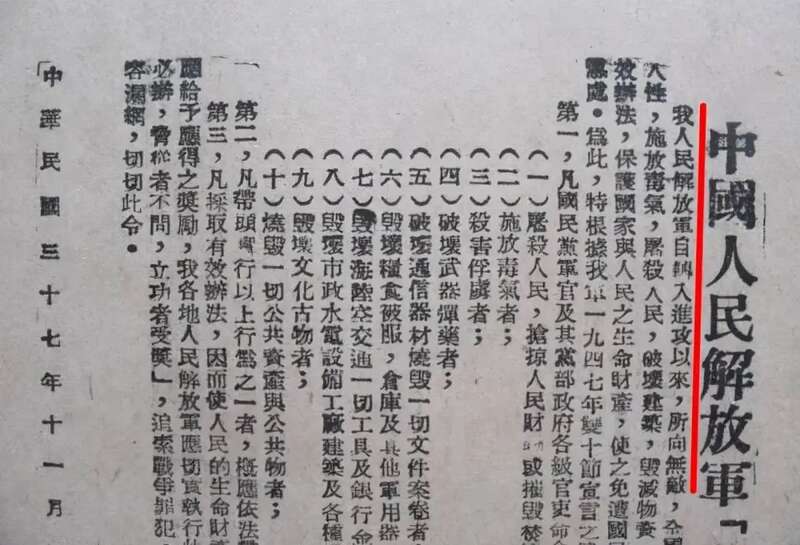 中國人民解放軍「
我人民解放軍自轉入進攻以來，所向無敵，全國
人性，施放毒氣，屠殺人民，破壞建築，毀滅物資
效辦法，保護國家與人民之生命財產，使之免遭國民
懲處。爲此，特根據我軍一九四七年雙十節宣言之
第一，凡國民黨軍官及其黨部政府各級官吏命令
（一）屠殺人民，搶掠人民財 或摧毀焚燒
（二）施放毒氣者；
（三）殺害俘虜者；
（四）破壞武器彈藥者；
（五）破壞通信器材燒毀一切文件案卷者
（六）毀壞糧食被服，倉庫及其他軍用器
（七）毀壞海陸空交通一切工具及銀行金
（八）毀壞市政水電設備工廠建築及各種
（九）毀壞文化古物者；
（十）燒毀一切公共資產與公共物者；
第二，凡帶頭實行以上行爲之一者，概應依法
第三，凡採取有效辦法，因而使人民的生命財產
應給予應得之獎勵，我各地人民解放軍應切實執行
必辦，脅從者不問，立功者受獎」，追索戰爭罪犯
容漏網，切切此令。
中華民國三十七年十一月